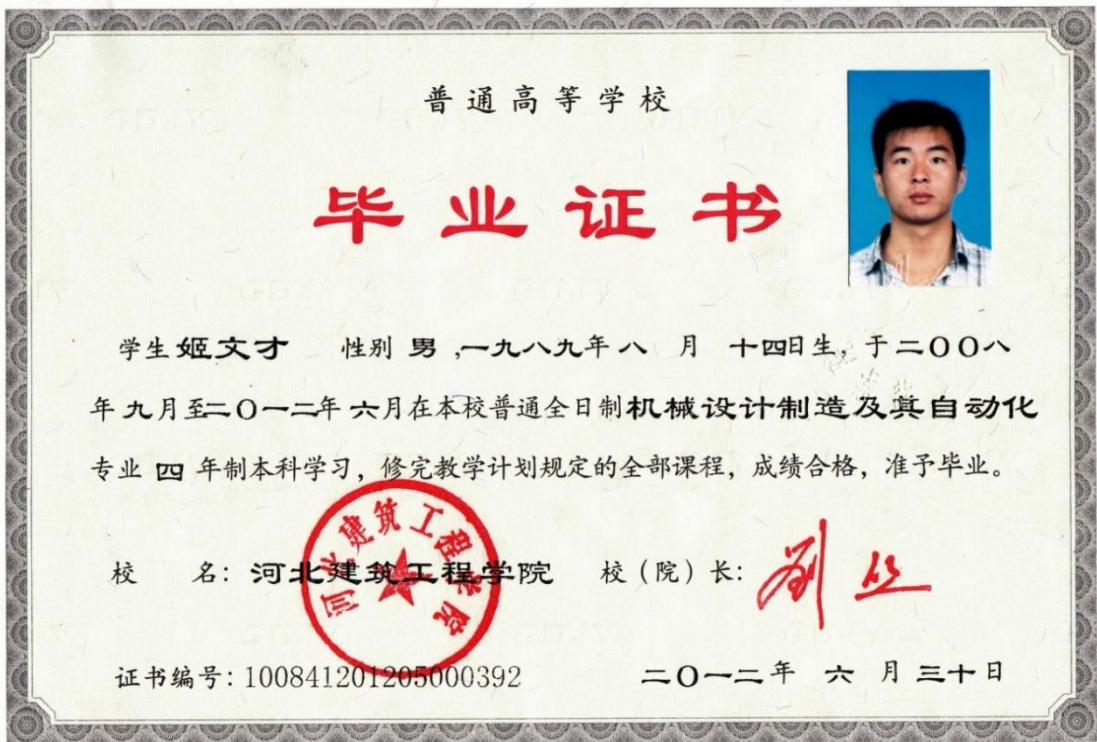 普通高等学校
毕业证书
学生姬文才 性别 男 ,一九八九年八 月 十四日生, 于二〇〇八
年九月至二〇一二年 六月在本校普通全日制机械设计制造及其自动化
专业 四 年制本科学习, 修完教学计划规定的全部课程, 成绩合格, 准予毕业。
河北建筑工程学院
校 名: 河北建筑工程学院 校(院)长:
证书编号: 100841201205000392 二〇一二年 六 月三十日